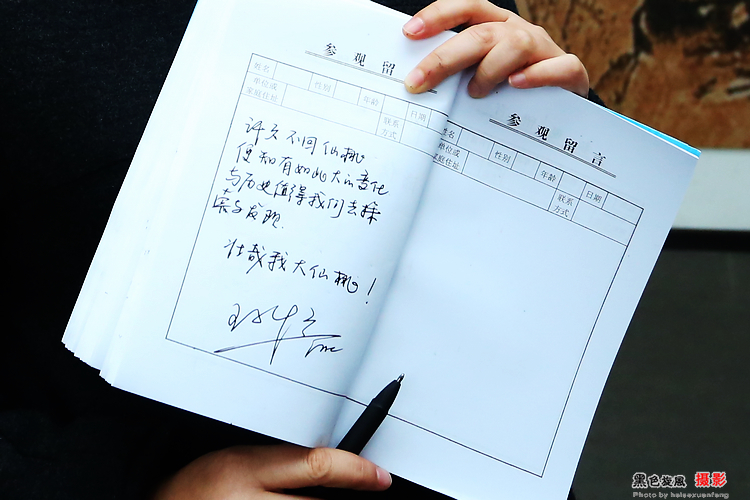 参观留
姓名 性别 年龄 日期
单位或
家庭住址
联系
方式
许久不回仙桃
便知有如此大的变化
与历史值得我们去探
索与发现.
壮哉我大仙桃!
参观留言
姓名 性别 年龄 日期
单位或
家庭住址
联系
方式
黑色旋風 摄影
Photo by heisexuanfeng